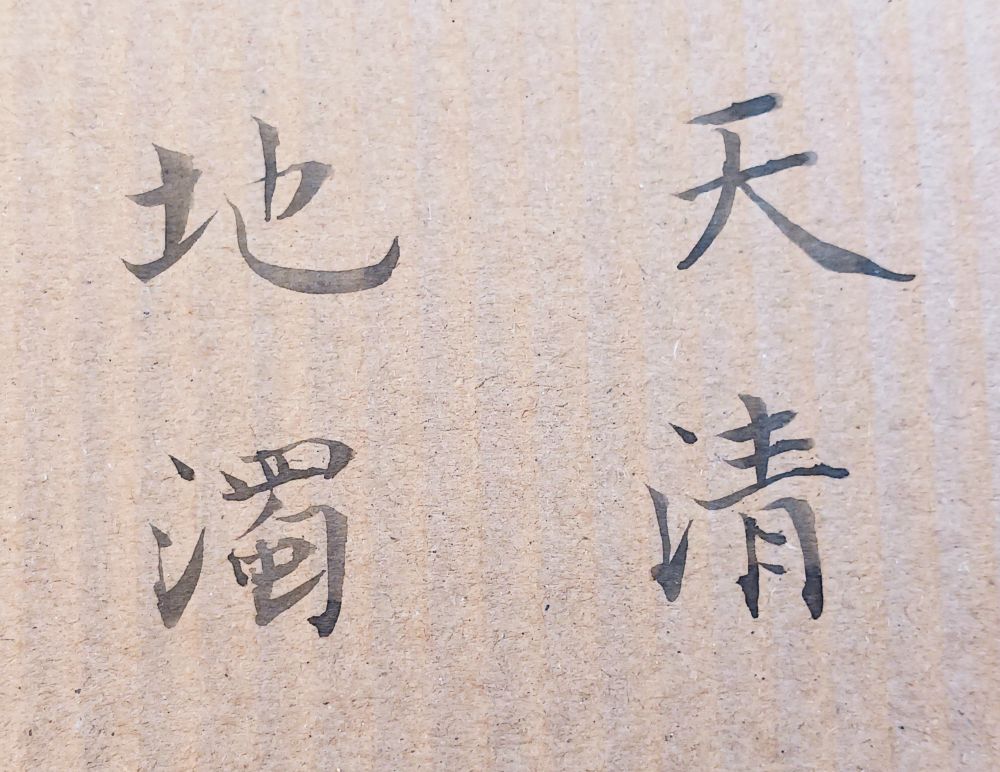 天清
地濁